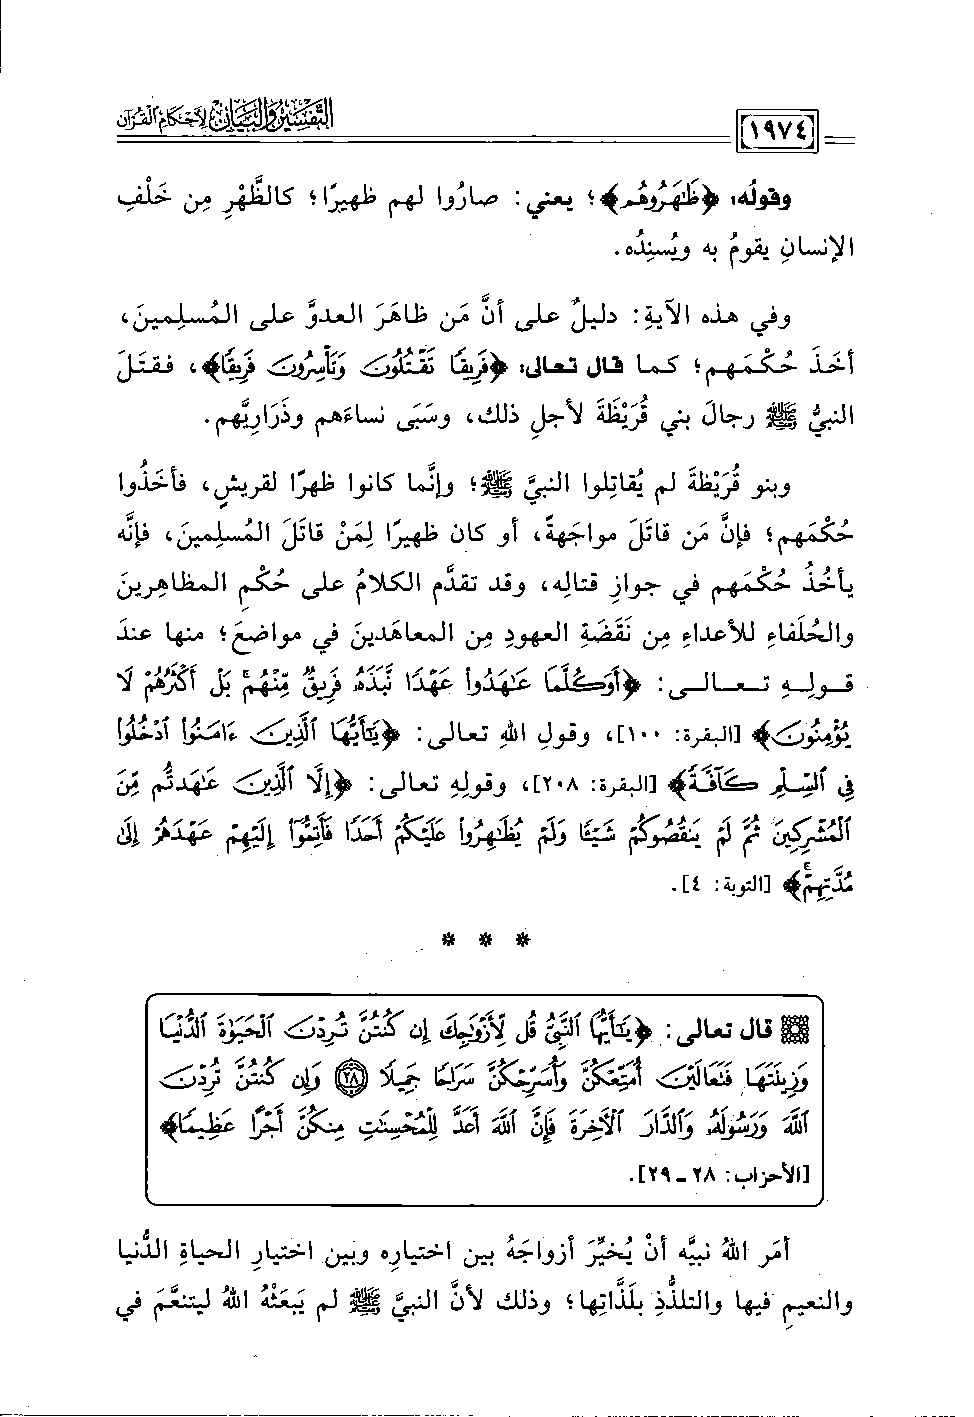 ١٩٧٤ التفسير والبيان لأحكام القرآن
وقولُه: ﴿ظَٰهَرُوهُم﴾؛ يعني: صارُوا لهم ظهيرًا؛ كالظَّهْرِ مِن خَلْفِ
الإنسانِ يقومُ به ويُسنِدُه.
وفي هذه الآيةِ: دليلٌ على أنَّ مَن ظاهَرَ العدوَّ على المُسلِمينَ،
أخَذَ حُكْمَهم؛ كما قال تعالى: ﴿فَرِيقًا تَقْتُلُونَ وَتَأْسِرُونَ فَرِيقًا﴾، فقتَلَ
النبيُّ ﷺ رجالَ بني قُرَيْظَةَ لأجلِ ذلك، وسَبَى نساءَهم وذَرَارِيَّهم.
وبنو قُرَيْظةَ لم يُقاتِلوا النبيَّ ﷺ؛ وإنَّما كانوا ظهرًا لقريشٍ، فأخَذُوا
حُكْمَهم؛ فإنَّ مَن قاتَلَ مواجهةً، أو كان ظهيرًا لِمَنْ قاتَلَ المُسلِمينَ، فإنَّه
يأخُذُ حُكْمَهم في جوازِ قتالِه، وقد تقدَّم الكلامُ على حُكْمِ المظاهِرينَ
والحُلَفاءِ للأعداءِ مِن نَقَضَةِ العهودِ مِن المعاهَدينَ في مواضعَ؛ منها عندَ
قولِهِ تعالى: ﴿أَوَكُلَّمَا عَٰهَدُوا۟ عَهْدًا نَّبَذَهُۥ فَرِيقٌ مِّنْهُم ۚ بَلْ أَكْثَرُهُمْ لَا
يُؤْمِنُونَ﴾ [البقرة: ١٠٠]، وقولِ اللهِ تعالى: ﴿يَٰٓأَيُّهَا ٱلَّذِينَ ءَامَنُوا۟ ٱدْخُلُوا۟
فِى ٱلسِّلْمِ كَآفَّةً﴾ [البقرة: ٢٠٨]، وقولِهِ تعالى: ﴿إِلَّا ٱلَّذِينَ عَٰهَدتُّم مِّنَ
ٱلْمُشْرِكِينَ ثُمَّ لَمْ يَنقُصُوكُمْ شَيْـًٔا وَلَمْ يُظَٰهِرُوا۟ عَلَيْكُمْ أَحَدًا فَأَتِمُّوٓا۟ إِلَيْهِمْ عَهْدَهُمْ إِلَىٰ
مُدَّتِهِمْ ۚ﴾ [التوبة: ٤].
* * *
قال تعالى: ﴿يَٰٓأَيُّهَا ٱلنَّبِىُّ قُل لِّأَزْوَٰجِكَ إِن كُنتُنَّ تُرِدْنَ ٱلْحَيَوٰةَ ٱلدُّنْيَا
وَزِينَتَهَا فَتَعَالَيْنَ أُمَتِّعْكُنَّ وَأُسَرِّحْكُنَّ سَرَاحًا جَمِيلًا ٢٨ وَإِن كُنتُنَّ تُرِدْنَ
ٱللَّهَ وَرَسُولَهُۥ وَٱلدَّارَ ٱلْءَاخِرَةَ فَإِنَّ ٱللَّهَ أَعَدَّ لِلْمُحْسِنَٰتِ مِنكُنَّ أَجْرًا عَظِيمًا﴾
[الأحزاب: ٢٨ ـ ٢٩].
أمَر اللهُ نبيَّه أنْ يُخيِّرَ أزواجَهُ بين اختيارِه وبين اختيارِ الحياةِ الدُّنيا
والنعيمِ فيها والتلذُّذِ بلَذَّاتِها؛ وذلك لأنَّ النبيَّ ﷺ لم يَبعَثْهُ اللهُ ليتنعَّمَ في